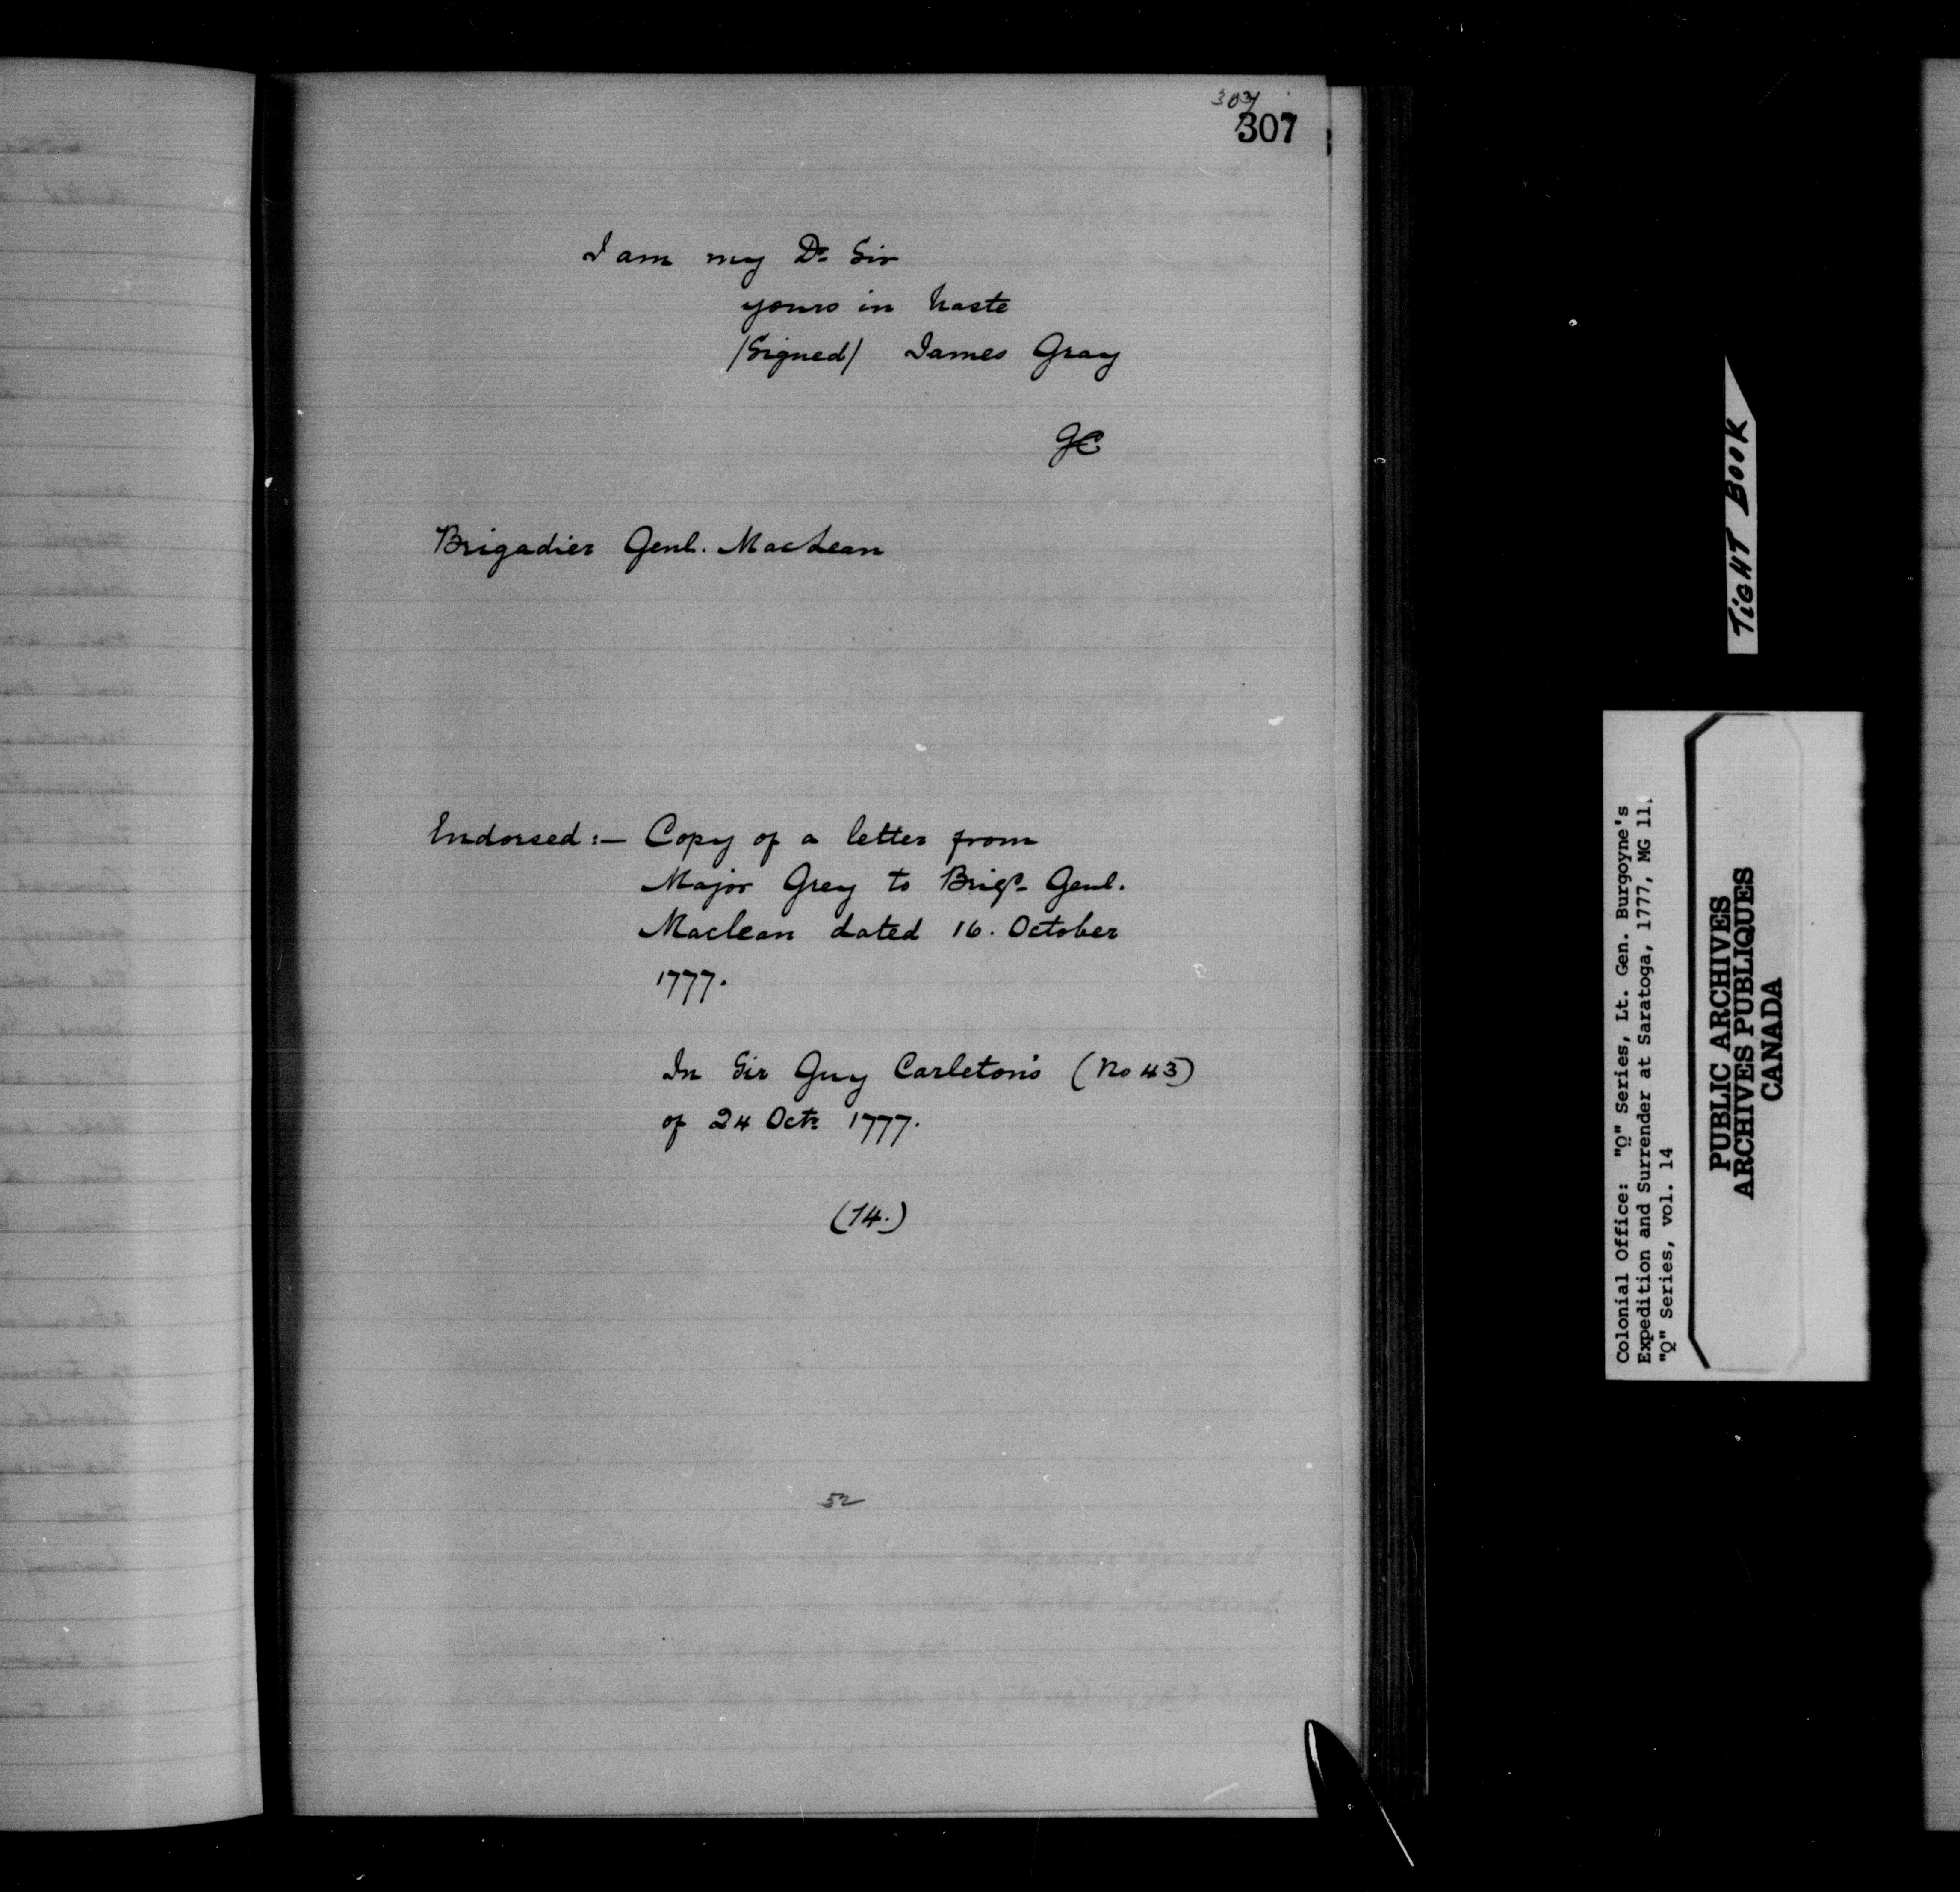 307
I am my Dr. Sir
yours in haste
/Signed/ James Gray
GC
Brigadier Genl. MacLean
Endorsed:— Copy of a letter from
Major Grey to Brigr. Genl.
Maclean dated 16. October
1777.
In Sir Guy Carleton's (No 43)
of 24 Octr. 1777.
(14.)
52
TiGHT BOOK
Colonial Office: "Q" Series, Lt. Gen. Burgoyne's
Expedition and Surrender at Saratoga, 1777, MG 11,
"Q" Series, vol. 14
PUBLIC ARCHIVES
ARCHIVES PUBLIQUES
CANADA